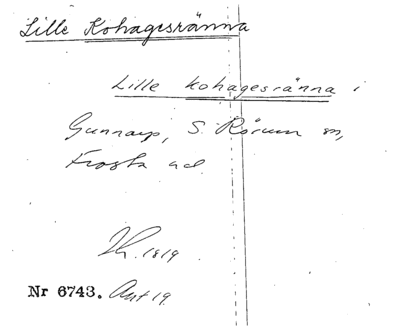 Lille Kohagesränna
Lille kohagesränna i
Gunnarp, S. Rörum sn,
Frosta hd.
1819
Nr 6743. Akt 19.